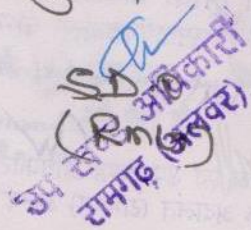 SDO
(Rmg)
उप खण्ड अधिकारी
रामगढ़ (अलवर)